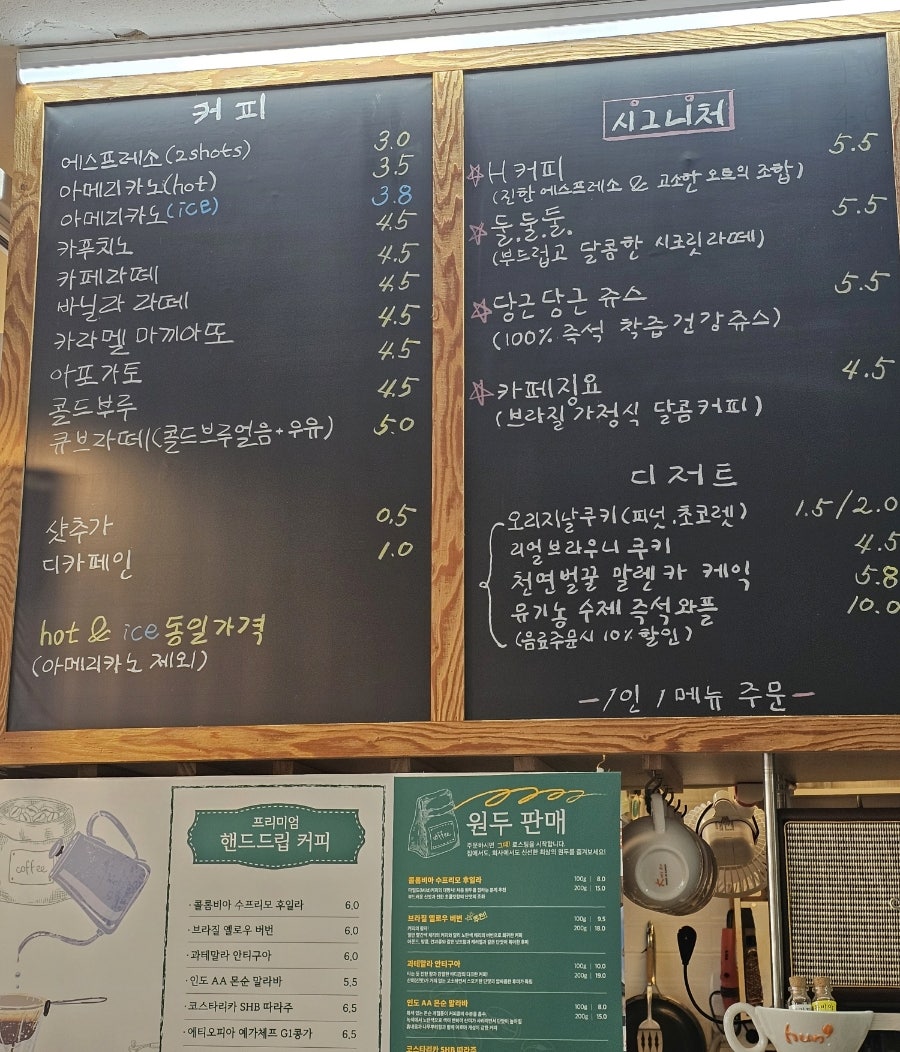 커 피
에스프레소(2shots) 3.0
아메리카노(hot) 3.5
아메리카노(ice) 3.8
카푸치노 4.5
카페라떼 4.5
바닐라 라떼 4.5
카라멜 마끼아또 4.5
아포가토 4.5
콜드부루 4.5
큐브라떼(콜드브루얼음+우유) 5.0
샷추가 0.5
디카페인 1.0
hot & ice 동일가격
(아메리카노 제외)
시그니처
☆H커피 5.5
(진한 에스프레소 & 고소한 오트의 조합)
☆둘.둘.둘. 5.5
(부드럽고 달콤한 시크릿라떼)
☆당근당근 쥬스 5.5
(100% 즉석 착즙건강쥬스)
☆카페징요 4.5
(브라질가정식 달콤커피)
디저트
오리지날쿠키(피넛.초코렛) 1.5/2.0
리얼브라우니 쿠키 4.5
천연벌꿀 말렌카 케익 5.8
유기농 수제 즉석와플 10.0
(음료주문시 10% 할인)
-1인 1메뉴 주문-
coffee
프리미엄
핸드드립 커피
·콜롬비아 수프리모 후일라 6,0
·브라질 옐로우 버번 6,0
·과테말라 안티구아 6,0
·인도 AA 몬순 말라바 5,5
·코스타리카 SHB 따라주 6,5
·에티오피아 예가체프 G1콩가 6,5
coffee
원두 판매
주문하시면 그때! 로스팅을 시작합니다.
집에서도, 회사에서도 신선한 최상의 원두를 즐겨보세요!
콜롬비아 수프리모 후일라 100g | 8.0
200g | 15.0
브라질 옐로우 버번 100g | 9.5
200g | 18.0
과테말라 안티구아 100g | 10.0
200g | 19.0
인도 AA 몬순 말라바 100g | 8.0
200g | 15.0
코스타리카 SHB 따라주